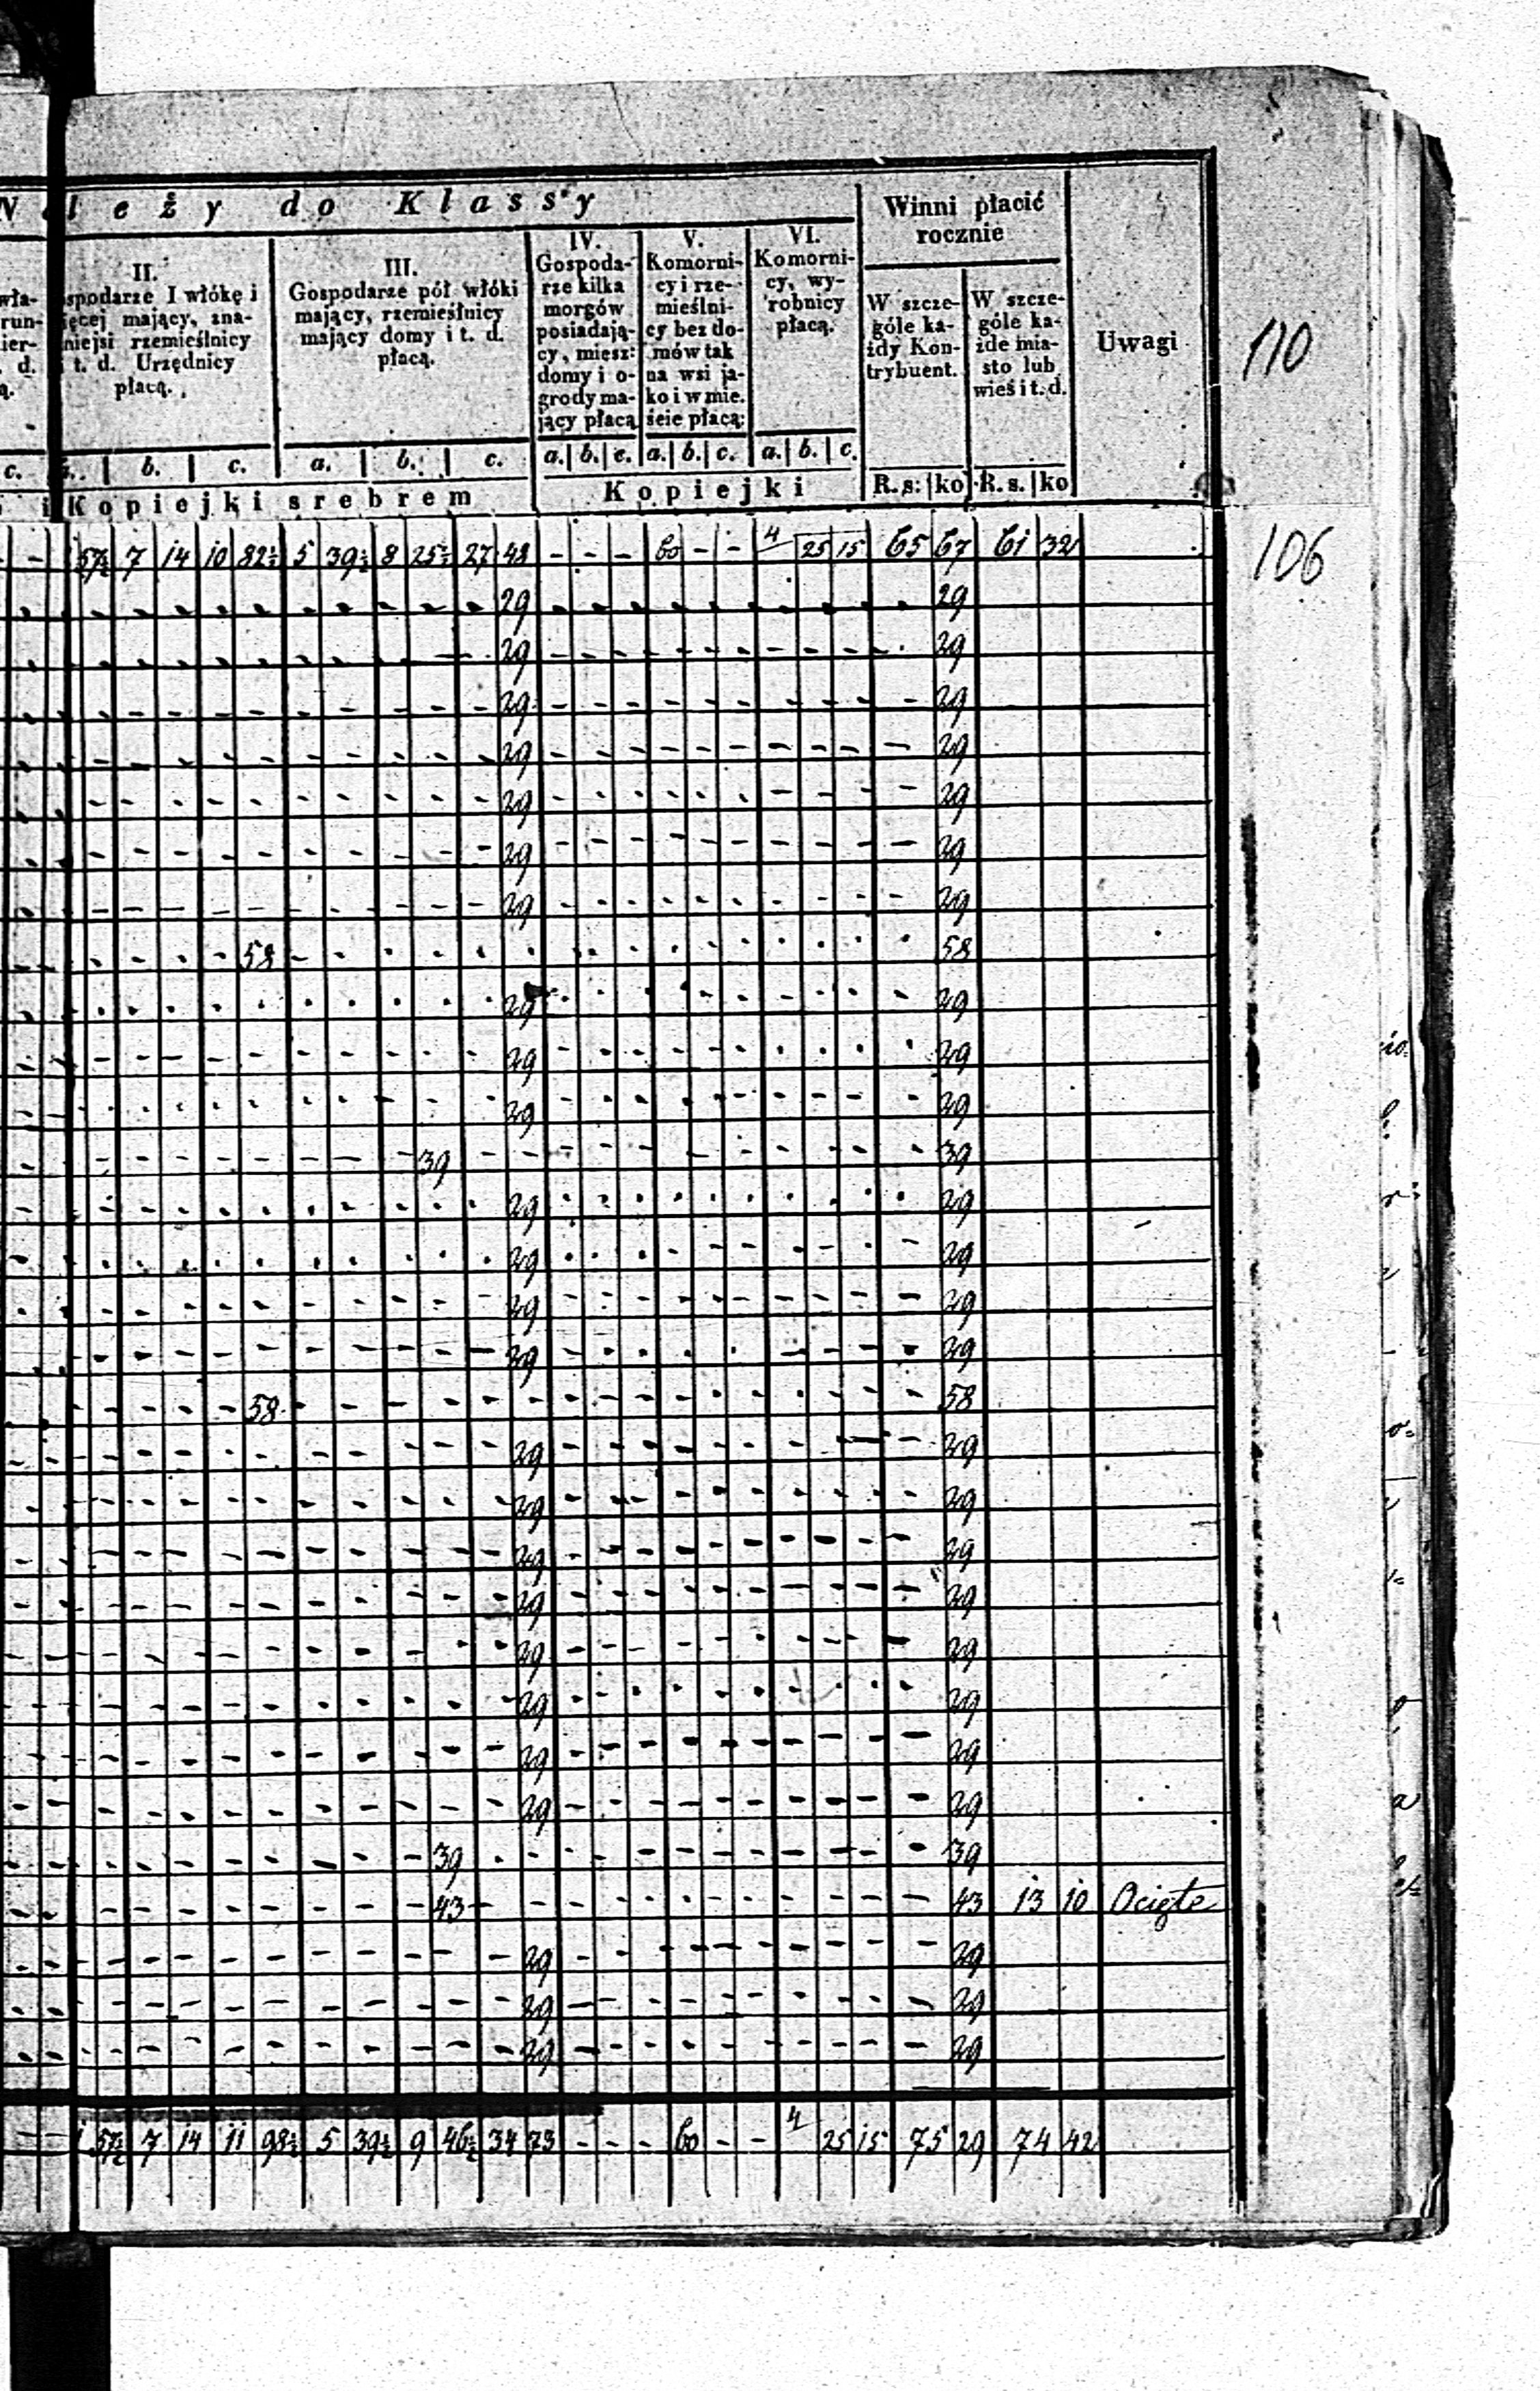 N a l e ż y do Klassy
Winni płacić
rocznie
Uwagi
110
II.
spodarze I włókę i
ięcej mający, zna-
niejsi rzemieślnicy
t. d. Urzędnicy
płacą.
III.
Gospodarze pół włóki
mający, rzemieślnicy
mający domy i t. d.
płacą.
IV.
Gospoda-
rze kilka
morgów
posiadają-
cy, miesz:
domy i o-
grody ma-
jący płacą
V.
Komorni-
cy i rze-
mieślni-
cy bez do-
mów tak
na wsi ja-
ko i w mie.
ście płacą:
VI.
Komorni-
cy, wy-
robnicy
płacą.
W szcze-
góle ka-
żdy Kon-
trybuent.
W szcze-
góle ka-
żde mia-
sto lub
wieś i t. d.
wła-
run-
ier-
. d.
ą.
c. a. b. c. a. b. c. a. b. c. a. b. c. a. b. c.
i Kopiejki srebrem Kopiejki R.s: ko R.s. ko
- - 57½ 7 14 10 82½ 5 39½ 8 25½ 27 48 - - - 60 - - 4 25 15 65 67 61 32
106
29 29
29 29
29 29
29 29
29 29
29 29
29 29
58 58
29 29
29 29
29 29
39 39
29 29
29 29
29 29
29 29
58 58
29 29
29 29
29 29
29 29
29 29
29 29
29 29
29 29
39 39
43 43 13 10 Ocięte
29 29
29 29
29 29
- - 1 57½ 7 14 11 98½ 5 39½ 9 46½ 34 73 - - - 60 - - 4 25 15 75 29 74 42